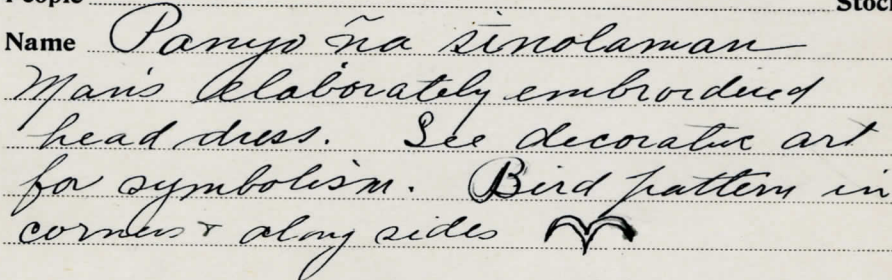 People Stock
Name Panyo ña sinolaman
Man's elaborately embroidered
head dress. See decorative art
for symbolism. Bird pattern in
corners + along sides